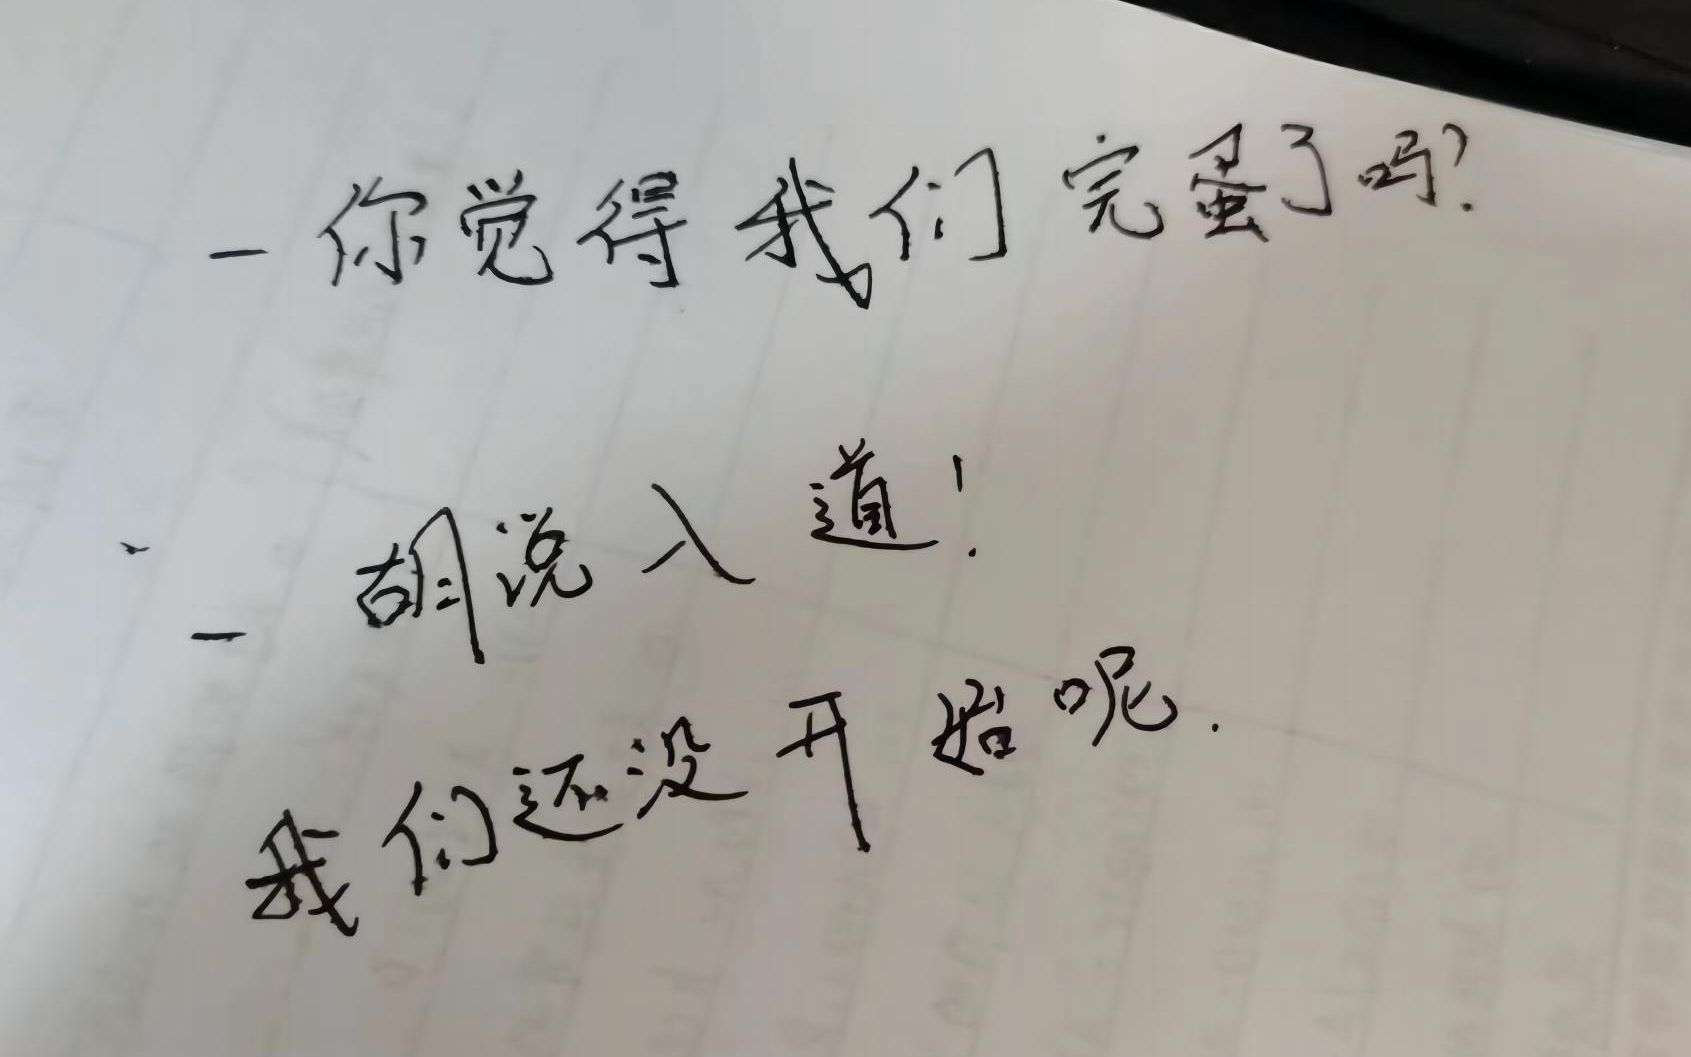 - 你觉得我们完蛋了吗?
- 胡说八道!
我们还没开始呢.